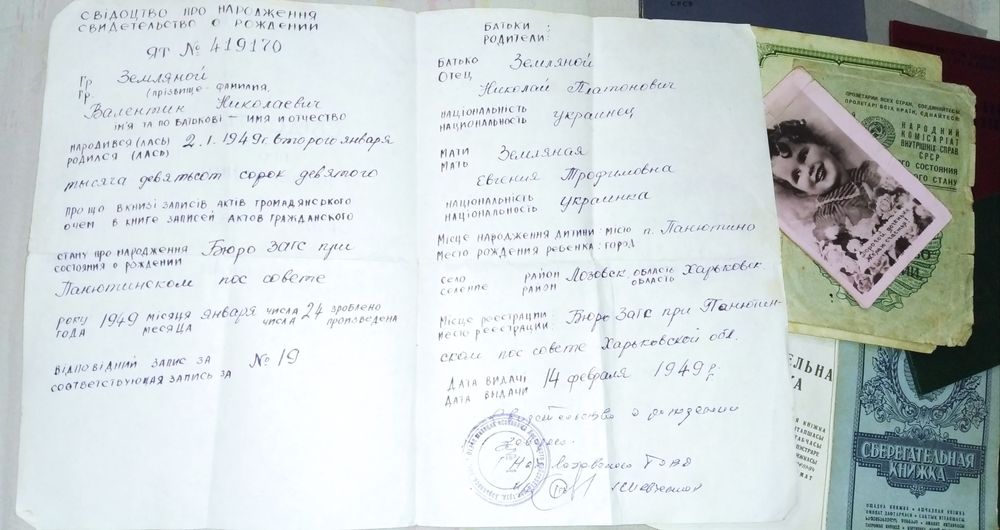 СВІДОЦТВО ПРО НАРОДЖЕННЯ
СВИДЕТЕЛЬСТВО О РОЖДЕНИИ
ЯТ № 419170
Гр. Земляной
Гр. (прізвище – фамилия,
Валентин Николаевич
ім'я та по батькові – имя и отчество
НАРОДИВСЯ (ЛАСЬ) 2.I.1949г. второго января
РОДИЛСЯ (ЛАСЬ)
тысяча девятьсот сорок девятого
ПРО ЩО В КНИЗІ ЗАПИСІВ АКТІВ ГРОМАДЯНСЬКОГО
О ЧЕМ В КНИГЕ ЗАПИСЕЙ АКТОВ ГРАЖДАНСКОГО
СТАНУ ПРО НАРОДЖЕННЯ Бюро Загс при
СОСТОЯНИЯ О РОЖДЕНИИ
Панютинском пос совете
РОКУ 1949 МІСЯЦЯ января ЧИСЛА 24 ЗРОБЛЕНО
ГОДА МЕСЯЦА ЧИСЛА ПРОИЗВЕДЕНА
ВІДПОВІДНИЙ ЗАПИС ЗА № 19
СООТВЕТСТВУЮЩАЯ ЗАПИСЬ ЗА
БАТЬКИ
РОДИТЕЛИ:
БАТЬКО Земляной
ОТЕЦ
Николай Платонович
НАЦІОНАЛЬНІСТЬ украинец
НАЦИОНАЛЬНОСТЬ
МАТИ Земляная
МАТЬ
Евгения Трофимовна
НАЦІОНАЛЬНІСТЬ украинка
НАЦИОНАЛЬНОСТЬ
МІСЦЕ НАРОДЖЕННЯ ДИТИНИ: МІСТО п. Панютино
МЕСТО РОЖДЕНИЯ РЕБЕНКА: ГОРОД
СЕЛО РАЙОН Лозовск. ОБЛАСТЬ Харьковск.
СЕЛЕНИЕ РАЙОН ОБЛАСТЬ
МІСЦЕ РЕЄСТРАЦІЇ: Бюро Загс при Панютин-
МЕСТО РЕГИСТРАЦИИ:
ском пос совете Харьковской обл.
ДАТА ВИДАЧІ 14 февраля 1949 г.
ДАТА ВЫДАЧИ
Свидетельство о рождении
СРСР
ПРОЛЕТАРИИ ВСЕХ СТРАН, СОЕДИНЯЙТЕСЬ!
ПРОЛЕТАРІ ВСІХ КРАЇН, ЄДНАЙТЕСЯ!
НАРОДНИЙ
КОМІСАРІАТ
ВНУТРІШНІХ СПРАВ
СРСР
СОСТОЯНИЯ
СТАНУ
СБЕРЕГАТЕЛЬНАЯ
КНИЖКА